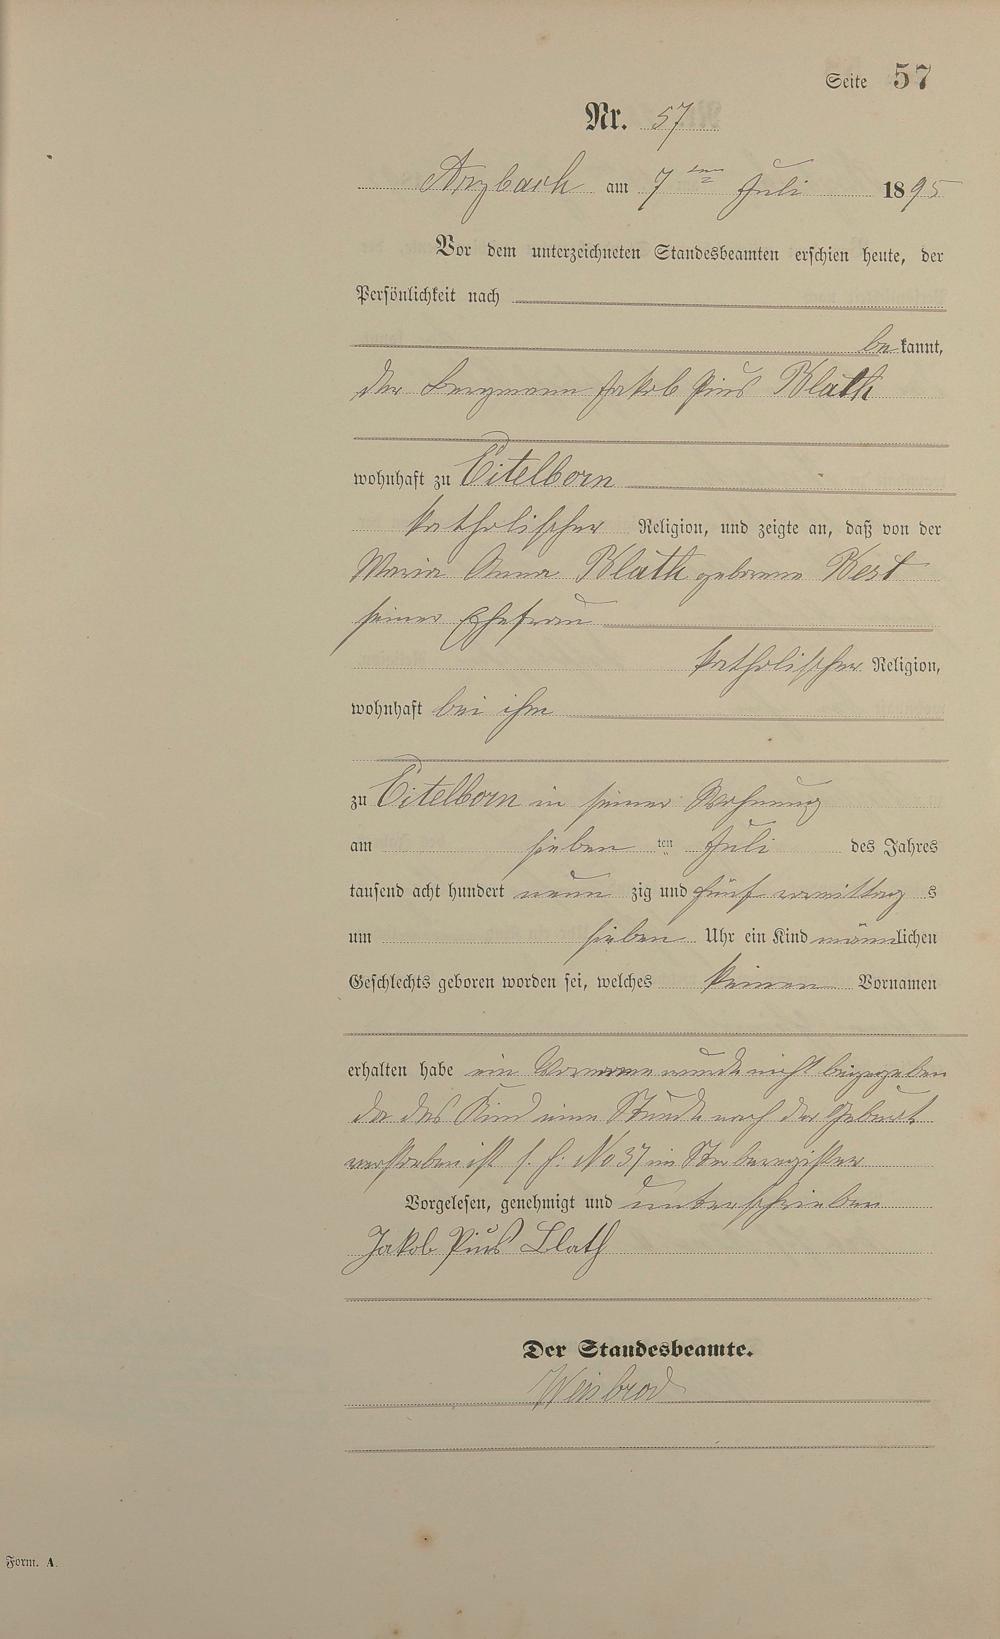 Seite 57
Nr. 57
Arzbach am 7ten Juli 1895
Vor dem unterzeichneten Standesbeamten erschien heute, der
Persönlichkeit nach
be kannt,
der Bergmann Jakob Pius Blath
wohnhaft zu Eitelborn
katholischer Religion, und zeigte an, daß von der
Maria Anna Blath geborene Best
seiner Ehefrau
katholischer Religion,
wohnhaft bei ihm
zu Eitelborn in seiner Wohnung
am sieben ten Juli des Jahres
tausend acht hundert neun zig und fünf vormittag s
um sieben Uhr ein Kind männlichen
Geschlechts geboren worden sei, welches keinen Vornamen
erhalten habe ein Vorname wurde nicht beigegeben
da das Kind eine Stunde nach der Geburt
verstorben ist s. h. No 37 im Sterberegister
Vorgelesen, genehmigt und unterschrieben
Jakob Pius Blath
Der Standesbeamte.
Weisbrod
Form. A.